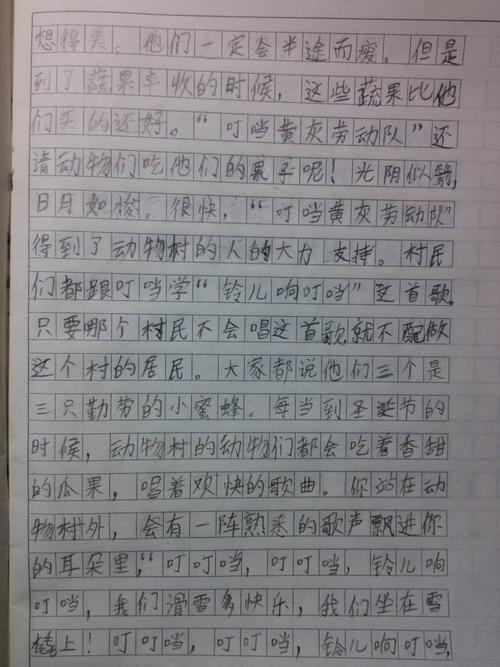 想得美。他们一定会半途而废。但是
到了蔬果丰收的时候，这些蔬果比他
们买的还好。“叮当黄灰劳动队”还
请动物们吃他们的果子呢！光阴似箭，
日月如梭。很快，“叮当黄灰劳动队”
得到了动物村的人的大力支持。村民
们都跟叮当学“铃儿响叮当”这首歌，
只要哪个村民不会唱这首歌，就不配做
这个村的居民。大家都说他们三个是
三只勤劳的小蜜蜂。每当到圣诞节的
时候，动物村的动物们都会吃着香甜
的瓜果，唱着欢快的歌曲。你站在动
物村外，会有一阵熟悉的歌声飘进你
的耳朵里，“叮叮当，叮叮当，铃儿响
叮当，我们滑雪多快乐，我们坐在雪
橇上！叮叮当，叮叮当，铃儿响叮当，